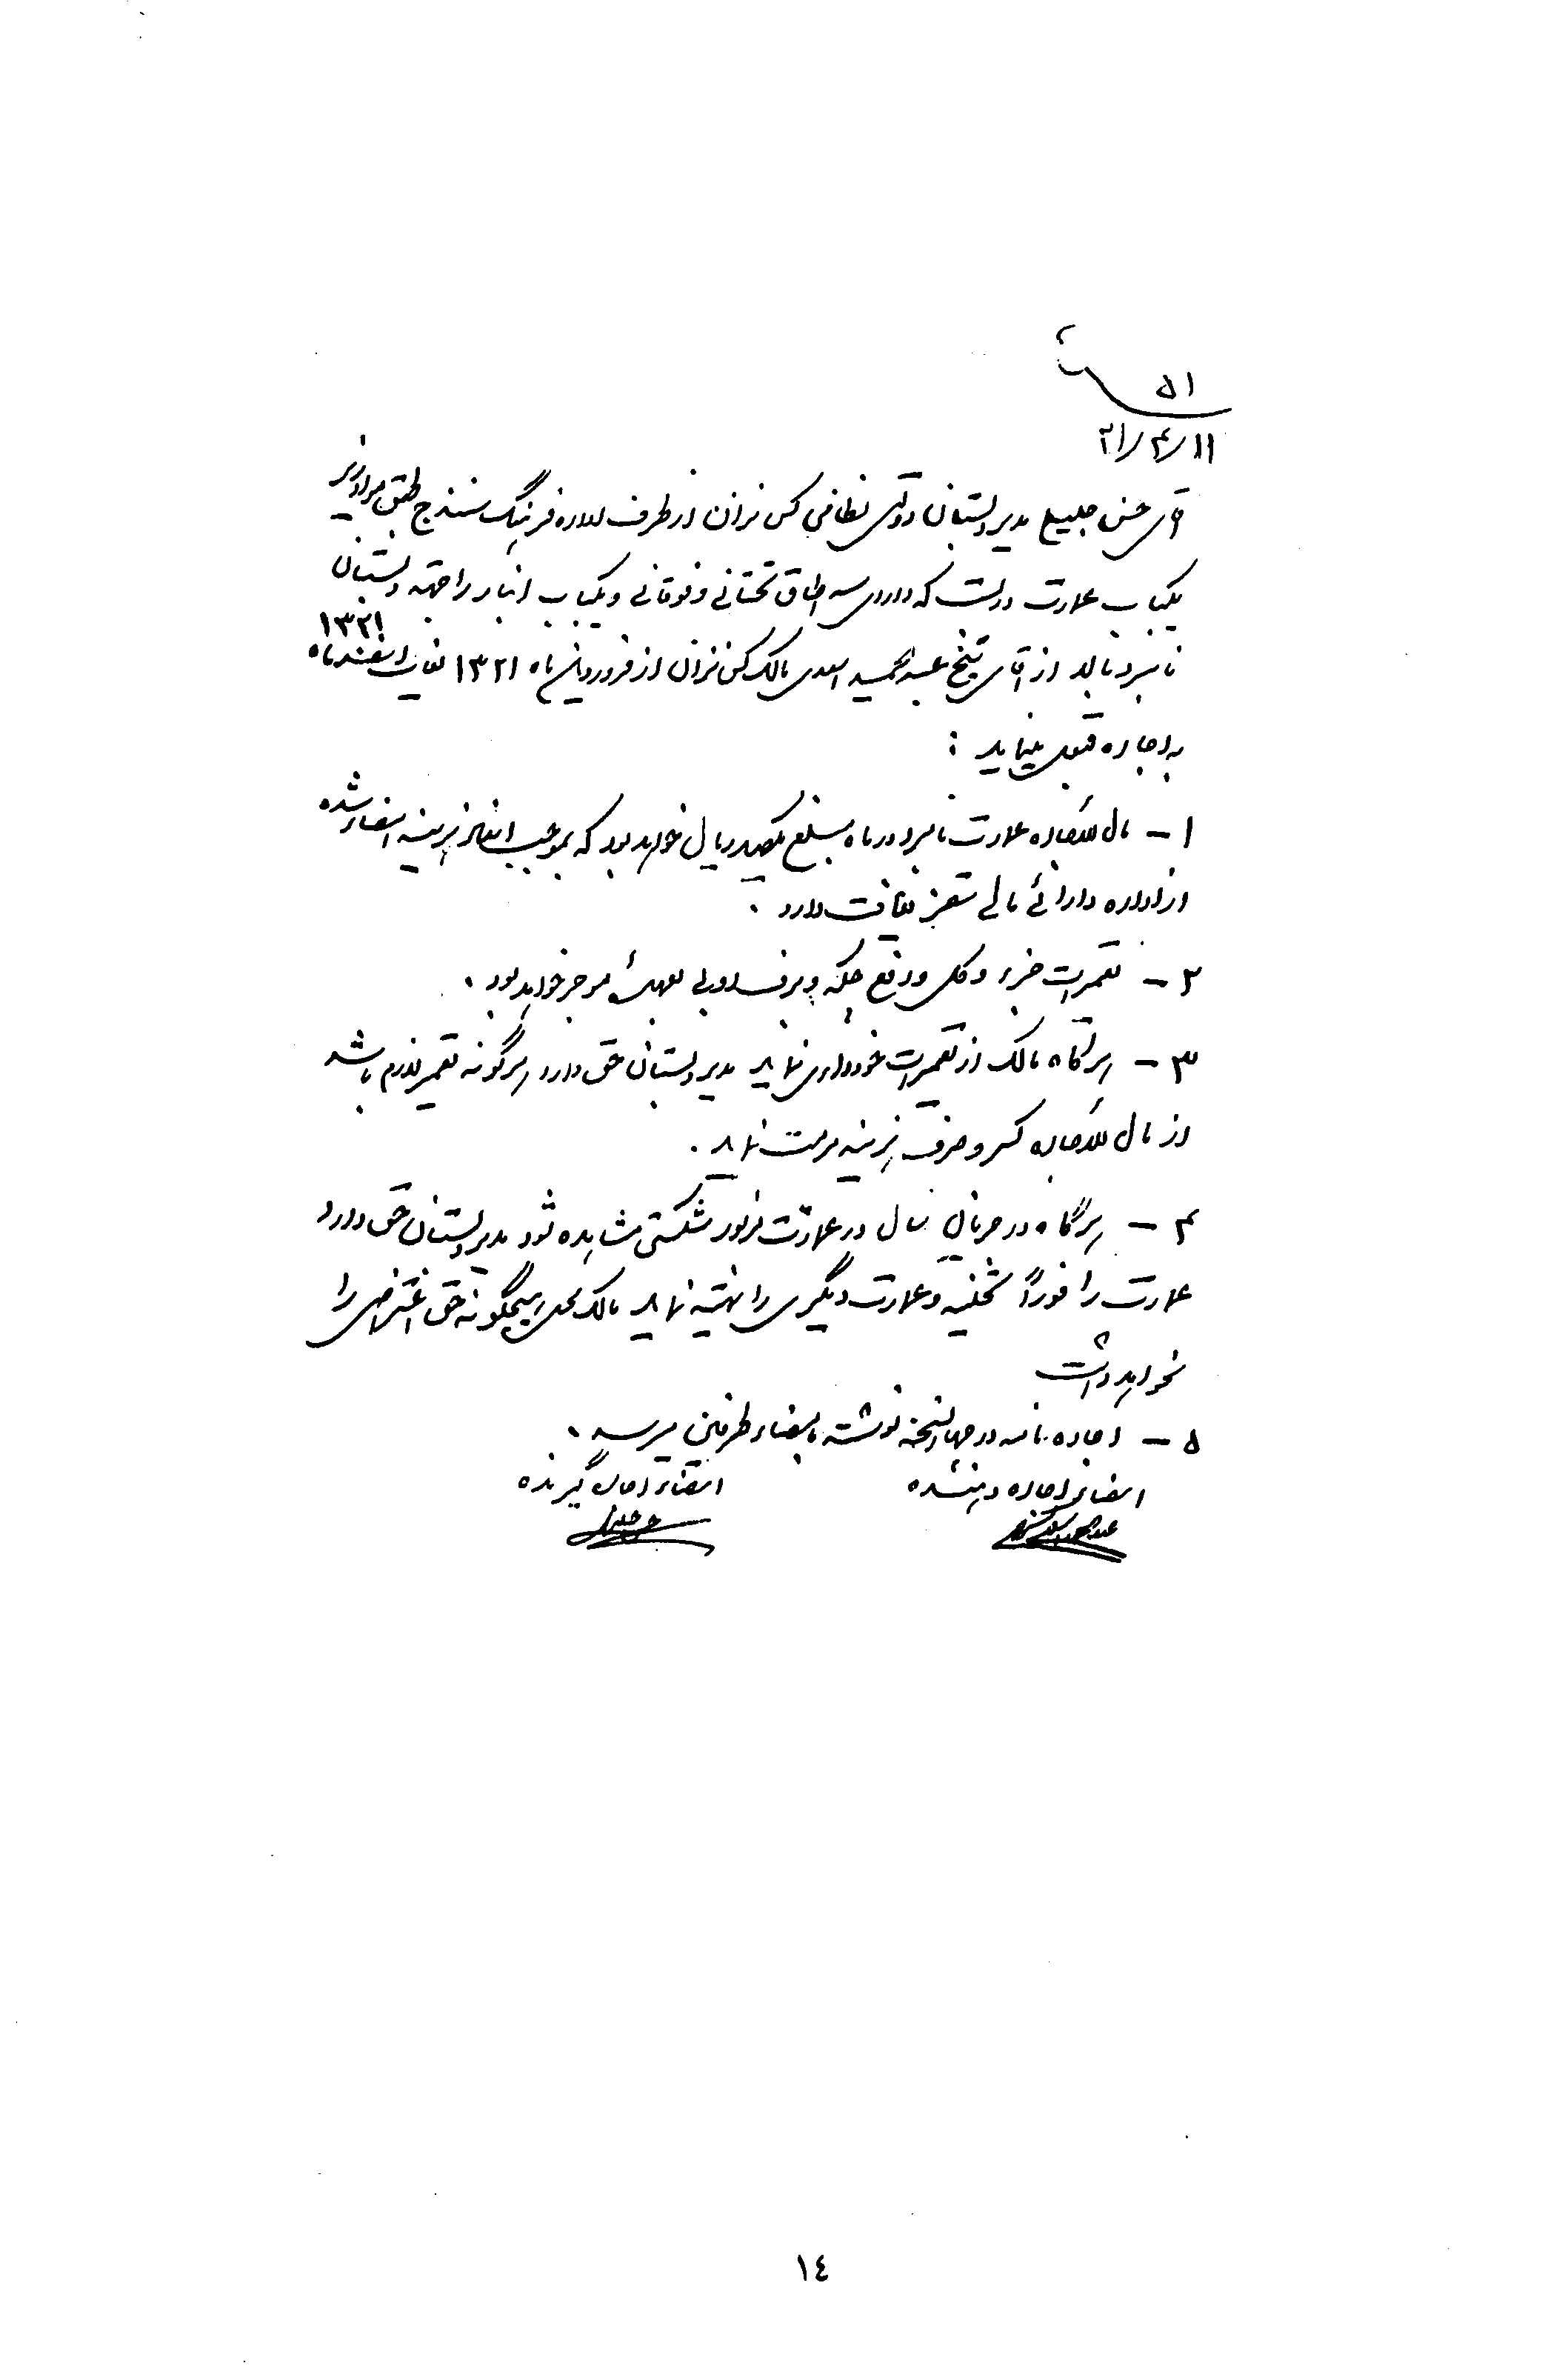 ۵۱
۲۱/۴/۱۱
آقای حسن جلیلی مدیر دبستان دولتی نظامی کس نزان از طرف اداره فرهنگ سنندج طبق مواد زیر
یکباب عمارت که دارای سه اطاق تحتانی و فوقانی و یکباب انبار را جهة دبستان
نامبرده بالا از آقای شیخ عبدالحمید اسعدی مالک کس نزان از فروردین ماه ۱۳۲۱ لغایت اسفندماه ۱۳۲۱
به اجاره قبول مینماید :
۱ - مال الاجاره عمارت نامبرده در ماه مبلغ یکصد ریال خواهد بود که بموجب هزینه امضاء شده
از اداره دارائی مالی سقز دریافت دارد .
۲ - تعمیرات جزء و کلی و رفع چکه و برف روبی بعهدهٔ موجر خواهد بود .
۳ - هرگاه مالک از تعمیرات خودداری نماید مدیر دبستان حق دارد هرگونه تعمیر لازم باشد
از مال الاجاره کسر و صرف هزینه مرمت نماید .
۴ - هرگاه در جریان سال در عمارت مزبور شکستی مشاهده شود مدیر دبستان حق دارد
عمارت را فوراً تخلیه و عمارت دیگری را تهیه نماید مالک محل هیچگونه حق اعتراض را
نخواهد داشت
۵ - اجاره نامه در چهار نسخه نوشته بامضاء طرفین میرسد .
امضاء اجاره دهنده
امضاء اجاره گیرنده
١٤